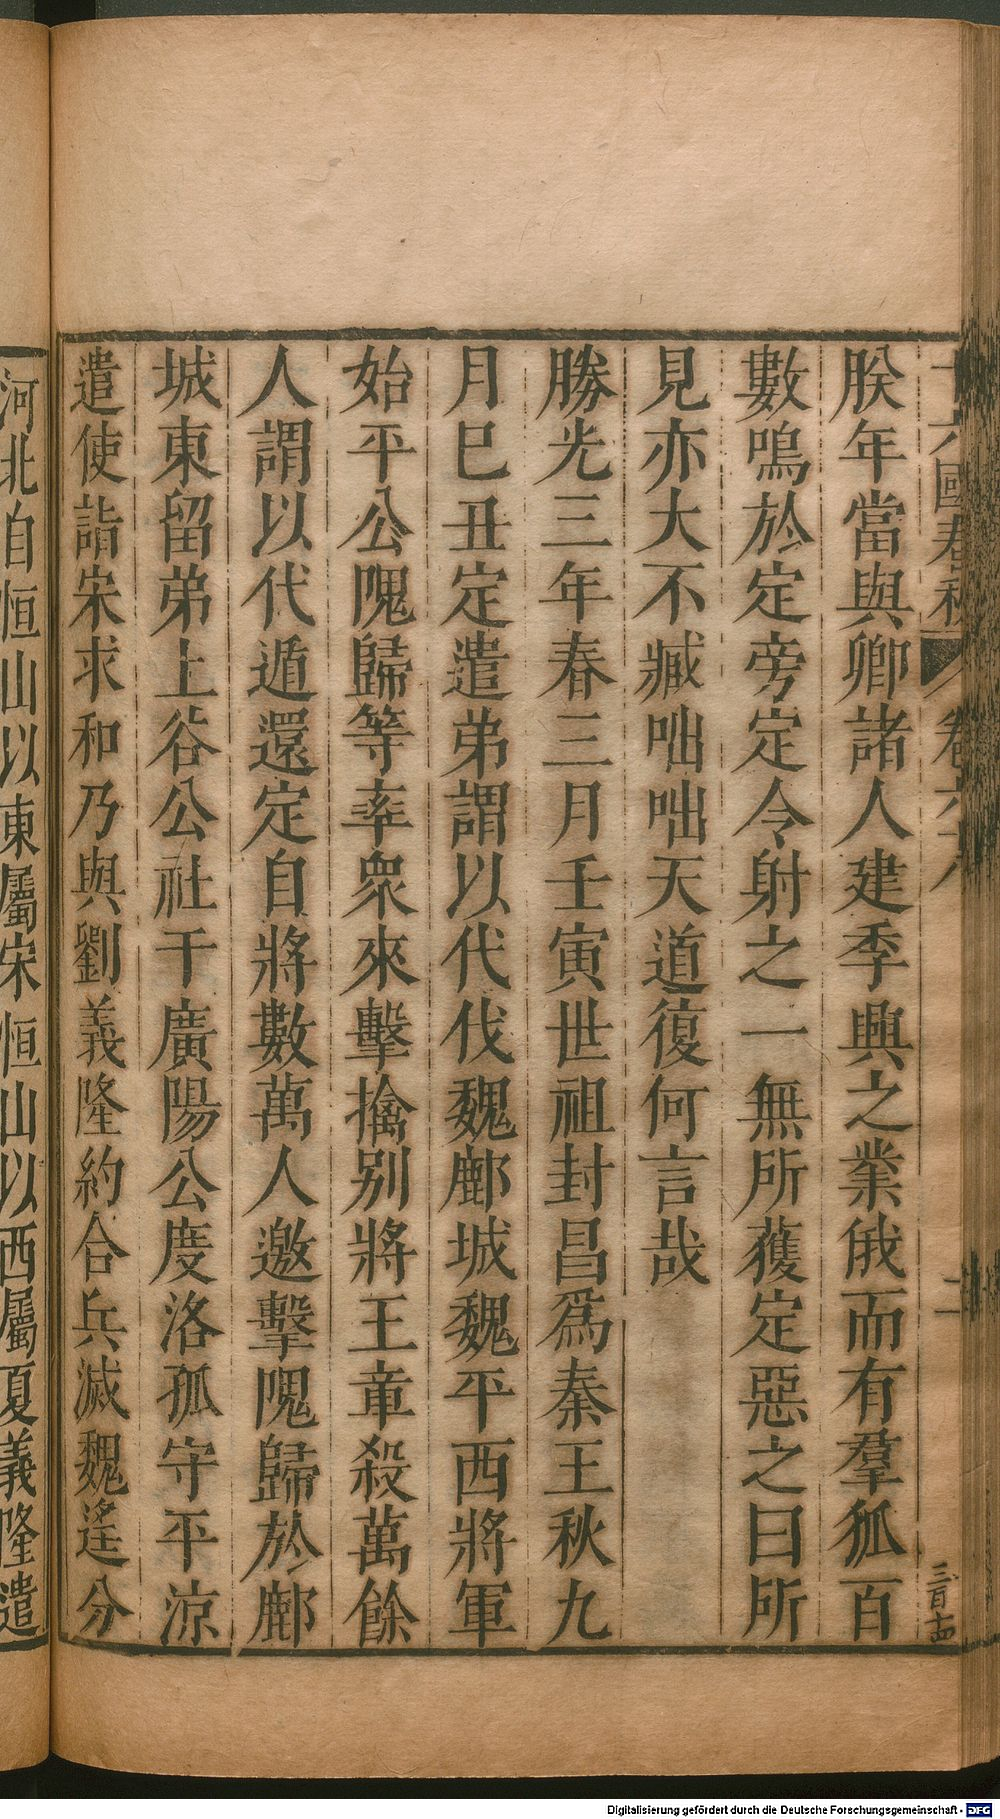 十六國春秋 卷六十八 二 三百十四
朕年當與卿諸人建季興之業俄而有羣狐百
數鳴於定旁定令射之一無所獲定惡之曰所
見亦大不臧咄咄天道復何言哉
勝光三年春三月壬寅世祖封昌爲秦王秋九
月巳丑定遣弟謂以代伐魏鄜城魏平西將軍
始平公隗歸等率衆來擊擒别將王章殺萬餘
人謂以代遁還定自將數萬人邀擊隗歸於鄜
城東留弟上谷公社干廣陽公度洛孤守平凉
遣使詣宋求和乃與劉義隆約合兵滅魏遙分
河北自恒山以東屬宋恒山以西屬夏義隆遣
Digitalisierung gefördert durch die Deutsche Forschungsgemeinschaft - DFG